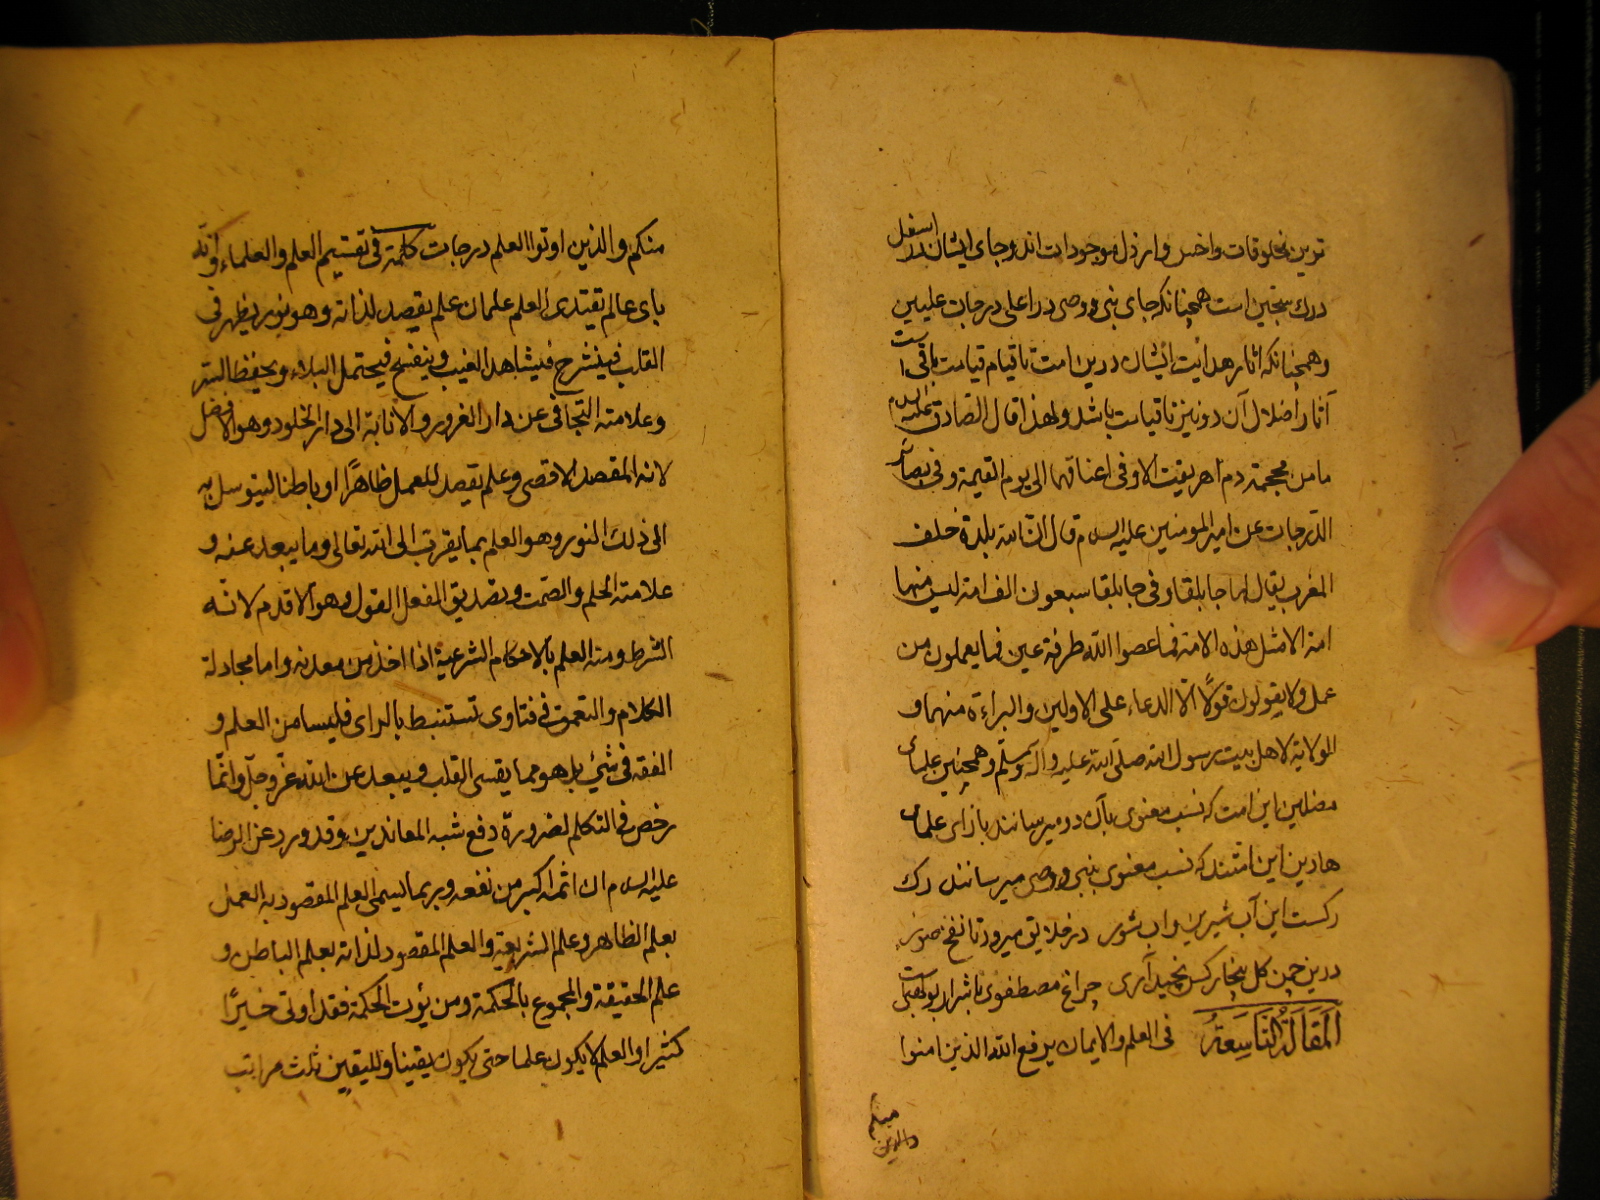 ترین مخلوقات واخس وارذل موجودات اند وجای ایشان در اسفل
درک سجین است همچنانکه جای نبی و وصی در اعلی درجات علیین
وهمچنانکه اثار هدایت ایشان درین امت تا قیام قیامت باقی است
آثار اضلال آن دو نیز تا قیامت باشد ولهذا قال الصادق علیه السلام
ما من محجمة دم اهریقت الا وفی اعناقهما الی یوم القیمة وفی بصائر
الدرجات عن امیر المومنین علیه السلم قال ان لله بلدة خلف
المغرب یقال لها جابلقا وفی جابلقا سبعون الف امة لیس منها
امة الا مثل هذه الامة فما عصوا الله طرفة عین فما یعملون من
عمل ولا یقولون قولًا الّا الدعاء علی الاولین والبراءة منهما و
الولایة لاهل بیت رسول الله صلّی الله علیه وآله وسلّم وهمچنین علمای
مضلین این امت که نسب معنوی بآن دو میرسانند بازای علمای
هادین این امتند که نسب معنوی بنبی و وصی میرسانند رک
رکست این آب شیرین واب شور در خلایق میرود تا نفخ صور
درین چمن کل بیخار کس نچید آری چراغ مصطفوی با شرار بولهبی است
اَلمَقَالَةُ التَّاسِعَةُ فی العلم والایمان یرفع الله الذین امنوا
منکم
والذین
منکم والذین اوتوا العلم درجات کلمة فی تقسیم العلم والعلماء وانّه
بای عالم یقتدی العلم علمان علم یقصد لذاته وهو نور یظهر فی
القلب فینشرح فیشاهد الغیب وینفسح فیحتمل البلاء ویحفظ السر
وعلامته التجافی عن دار الغرور والانابة الی دار الخلود وهو الافضل
لانه المقصد الاقصی وعلم یقصد للعمل ظاهرًا او باطنا لیتوسل به
الی ذلک النور وهو العلم بما یقرب الی الله تعالی وما یبعد عنه و
علامته الحلم والصمت وتصدیق الفعل القول وهو الاقدم لانّه
الشرط ومنه العلم بالاحکام الشرعیة اذا اخذ من معدنه واما مجادلة
الکلام والتعمق فی فتاوی تستنبط بالرای فلیسا من العلم و
الفقه فی شئ بل هو مما یقسی القلب ویبعد عن الله عزّ وجلّ وانّما
رخص فی التکلم لضرورة دفع شبه المعاندین وقد ورد عن الرضا
علیه السلم ان اثمه اکبر من نفعه وربما یسمی العلم المقصود به العمل
بعلم الظاهر وعلم الشریعة والعلم المقصود لذاته بعلم الباطن و
علم الحقیقة والمجموع بالحکمة ومن یؤت الحکمة فقد اوتی خیرًا
کثیرا والعلم لا یکون علما حتی یکون یقینا وللیقین ثلث مراتب